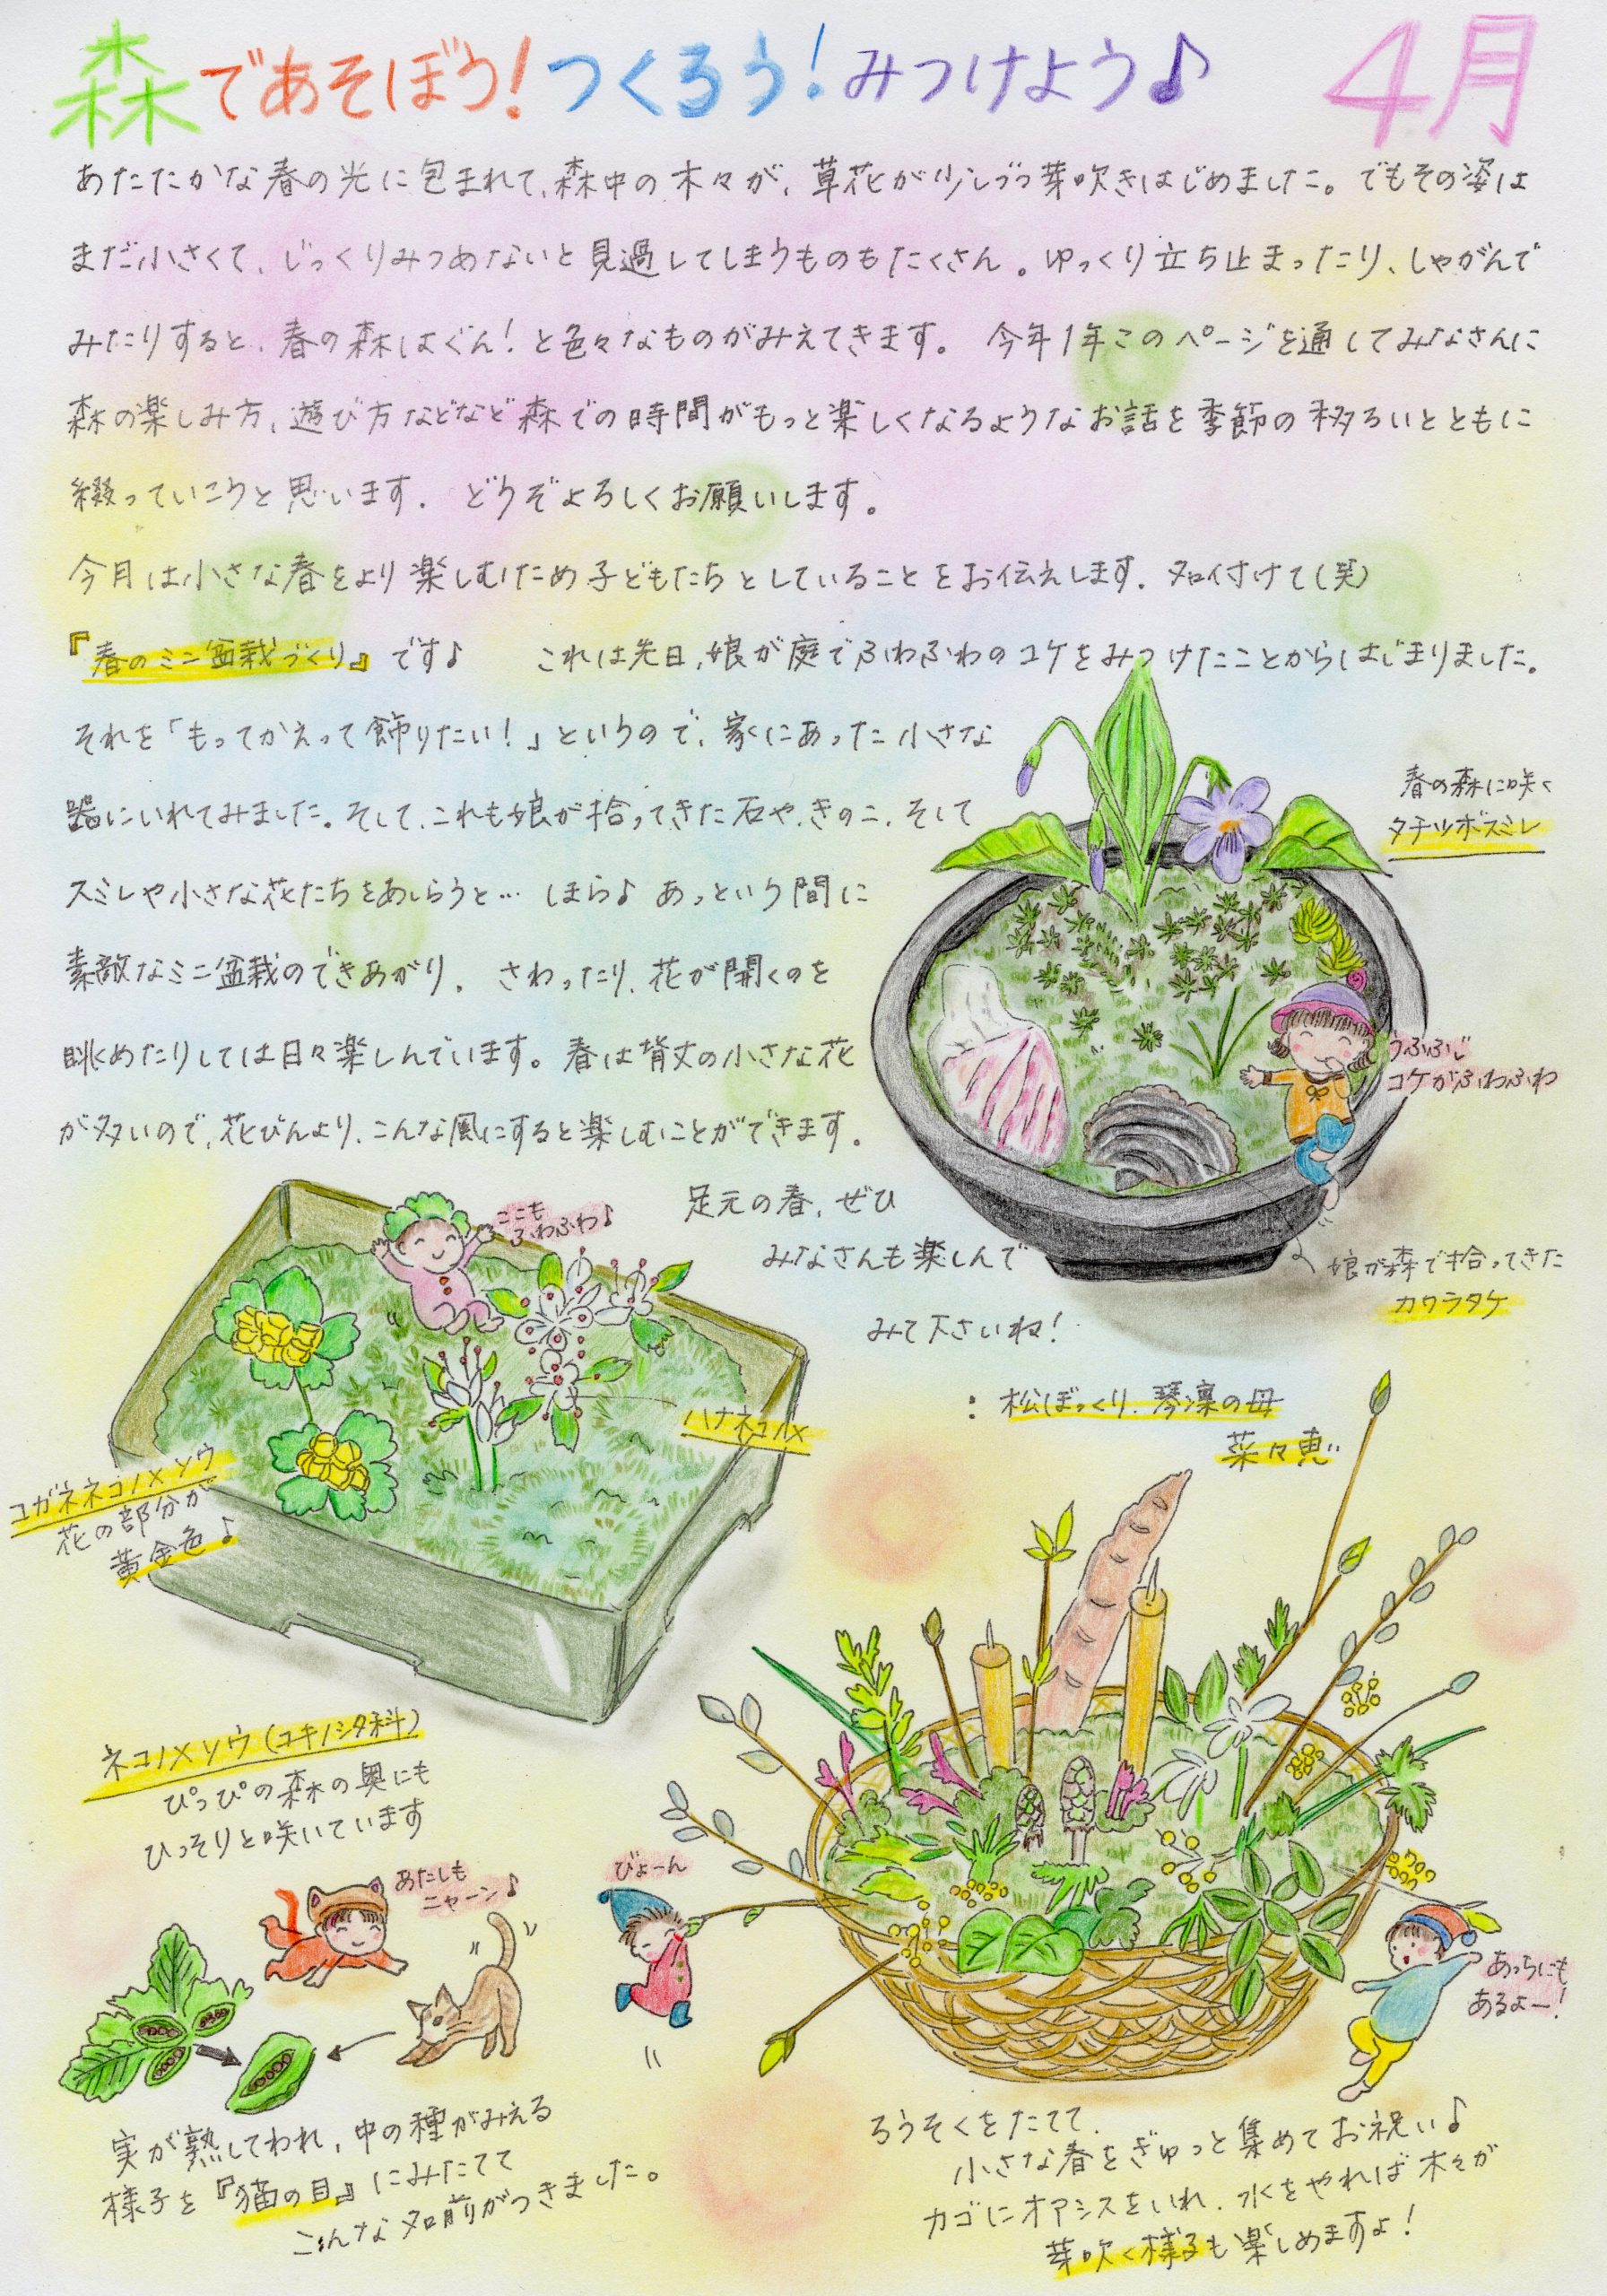 森であそぼう！つくろう！みつけよう♪ 4月
あたたかな春の光に包まれて、森中の木々が、草花が少しづつ芽吹きはじめました。でもその姿は
まだ小さくて、じっくりみつめないと見過してしまうものもたくさん。ゆっくり立ち止まったり、しゃがんで
みたりすると、春の森はぐん！と色々なものがみえてきます。 今年1年このページを通してみなさんに
森の楽しみ方、遊び方などなど森での時間がもっと楽しくなるようなお話を季節の移ろいとともに
綴っていこうと思います。 どうぞよろしくお願いします。
今月は小さな春をより楽しむため子どもたちとしていることをお伝えします。名付けて(笑)
『春のミニ盆栽づくり』です♪ これは先日、娘が庭でふわふわのコケをみつけたことからはじまりました。
それを「もってかえって飾りたい！」というので、家にあった小さな
器にいれてみました。そして、これも娘が拾ってきた石や、きのこ、そして
スミレや小さな花たちをあしらうと… ほら♪ あっという間に
素敵なミニ盆栽のできあがり。 さわったり、花が開くのを
眺めたりしては日々楽しんでいます。春は背丈の小さな花
が多いので、花びんより、こんな風にすると楽しむことができます。
足元の春、ぜひ
みなさんも楽しんで
みて下さいね！
：松ぼっくり、琴凜の母
菜々恵
春の森に咲く
タチツボスミレ
うふふ♡
コケがふわふわ
娘が森で拾ってきた
カワラタケ
ここも
ふわふわ♪
ハナネコノメ
コガネネコノメソウ
花の部分が
黄金色♪
ネコノメソウ(ユキノシタ科)
ぴっぴの森の奥にも
ひっそりと咲いています
あたしも
ニャーン♪
びょーん
あっちにも
あるよー！
実が熟してわれ、中の種がみえる
様子を『猫の目』にみたてて
こんな名前がつきました。
ろうそくをたてて、
小さな春をぎゅっと集めてお祝い♪
カゴにオアシスをいれ、水をやれば木々が
芽吹く様子も楽しめますよ！